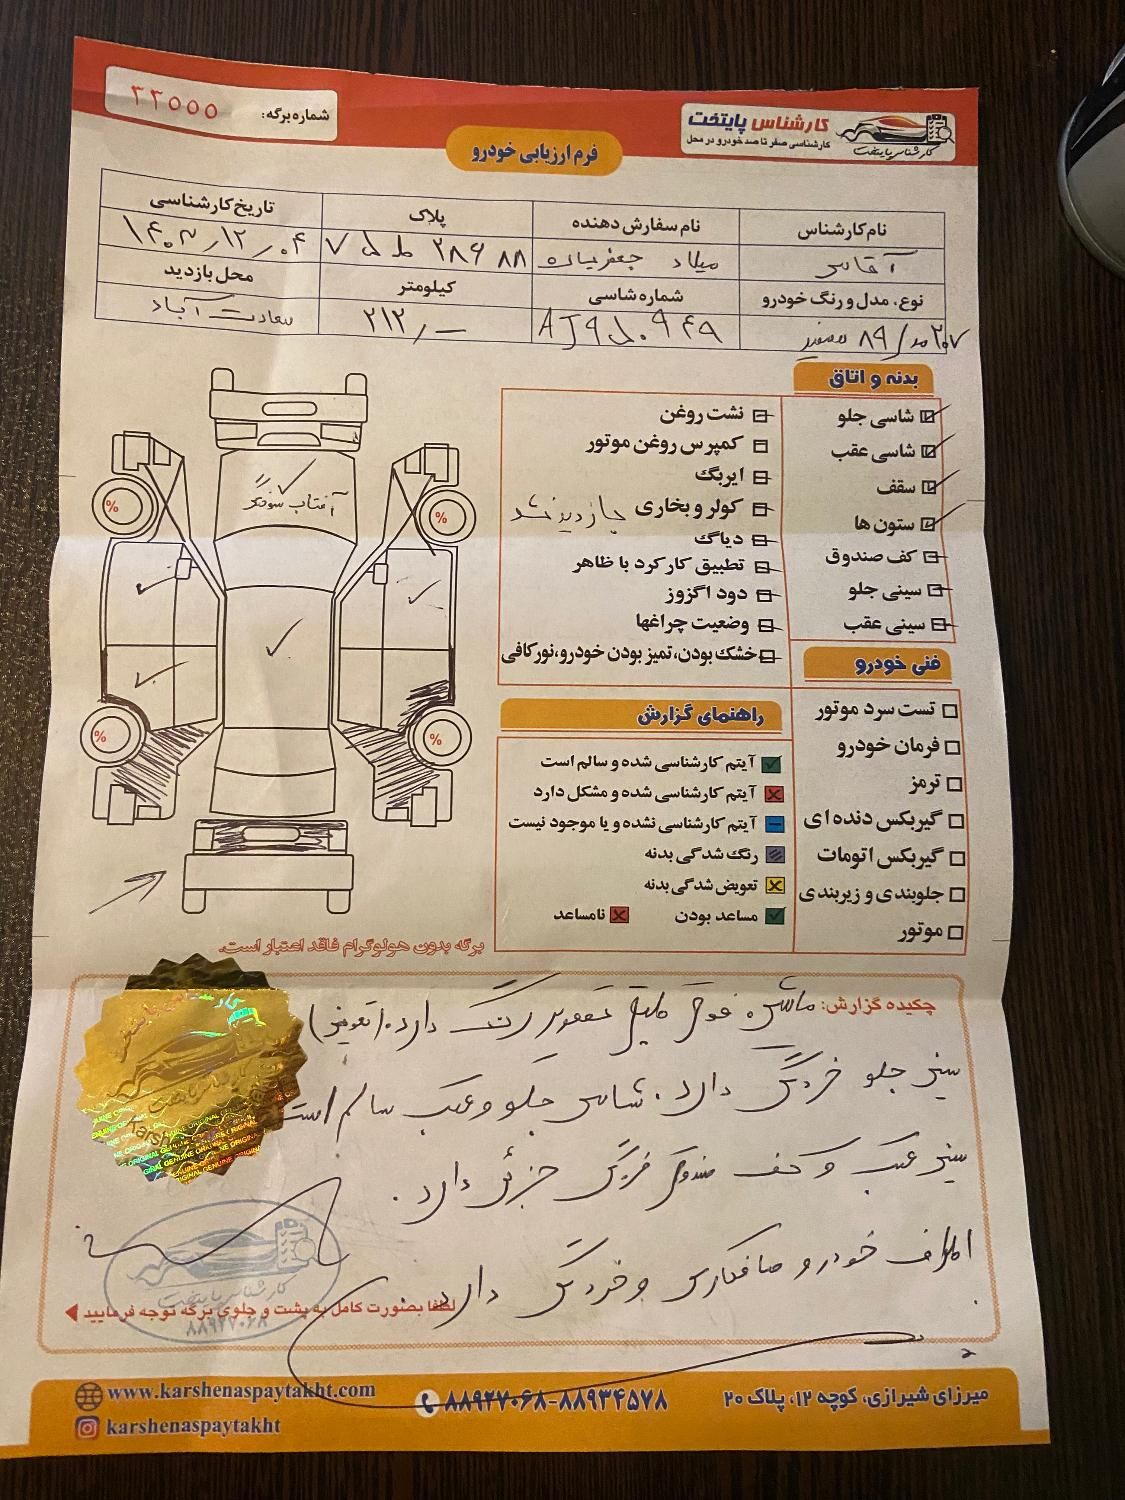 شماره برگه: ۲۲۵۵۵
کارشناس پایتخت
کارشناسی صفر تا صد خودرو در محل
کارشناس پایتخت
فرم ارزیابی خودرو
نام کارشناس
نام سفارش دهنده
پلاک
تاریخ کارشناسی
میلاد
۱۴۰۳,۱۲,۰۴
نوع، مدل و رنگ خودرو
شماره شاسی
کیلومتر
محل بازدید
۲۰۷ ۸۹ سفید
۲۱۲,ـ
سعادت آباد
بدنه و اتاق
شاسی جلو
شاسی عقب
سقف
ستون ها
کف صندوق
سینی جلو
سینی عقب
نشت روغن
کمپرس روغن موتور
ایربگ
کولر و بخاری
بازدید نشد
دیاگ
تطبیق کارکرد با ظاهر
دود اگزوز
وضعیت چراغها
خشک بودن، تمیز بودن خودرو، نورکافی
فنی خودرو
تست سرد موتور
فرمان خودرو
ترمز
گیربکس دنده ای
گیربکس اتومات
جلوبندی و زیربندی
موتور
راهنمای گزارش
آیتم کارشناسی شده و سالم است
آیتم کارشناسی شده و مشکل دارد
آیتم کارشناسی نشده و یا موجود نیست
رنگ شدگی بدنه
تعویض شدگی بدنه
مساعد بودن
نامساعد
آفتاب سوختگی
%
%
%
%
برگه بدون هولوگرام فاقد اعتبار است.
چکیده گزارش: ماشین فوق رنگ دارد. (تعویض)
سینی جلو خوردگی دارد. شاسی جلو و عقب سالم است
سینی عقب و کف صندوق خوردگی جزئی دارد.
اطراف خودرو صافکاری و خوردگی دارد.
کارشناس پایتخت
۸۸۹۲۷۰۶۸
لطفا بصورت کامل به پشت و جلوی برگه توجه فرمایید
www.karshenaspaytakht.com
karshenaspaytakht
۸۸۹۲۷۰۶۸-۸۸۹۳۴۵۷۸
میرزای شیرازی، کوچه ۱۲، پلاک ۲۰